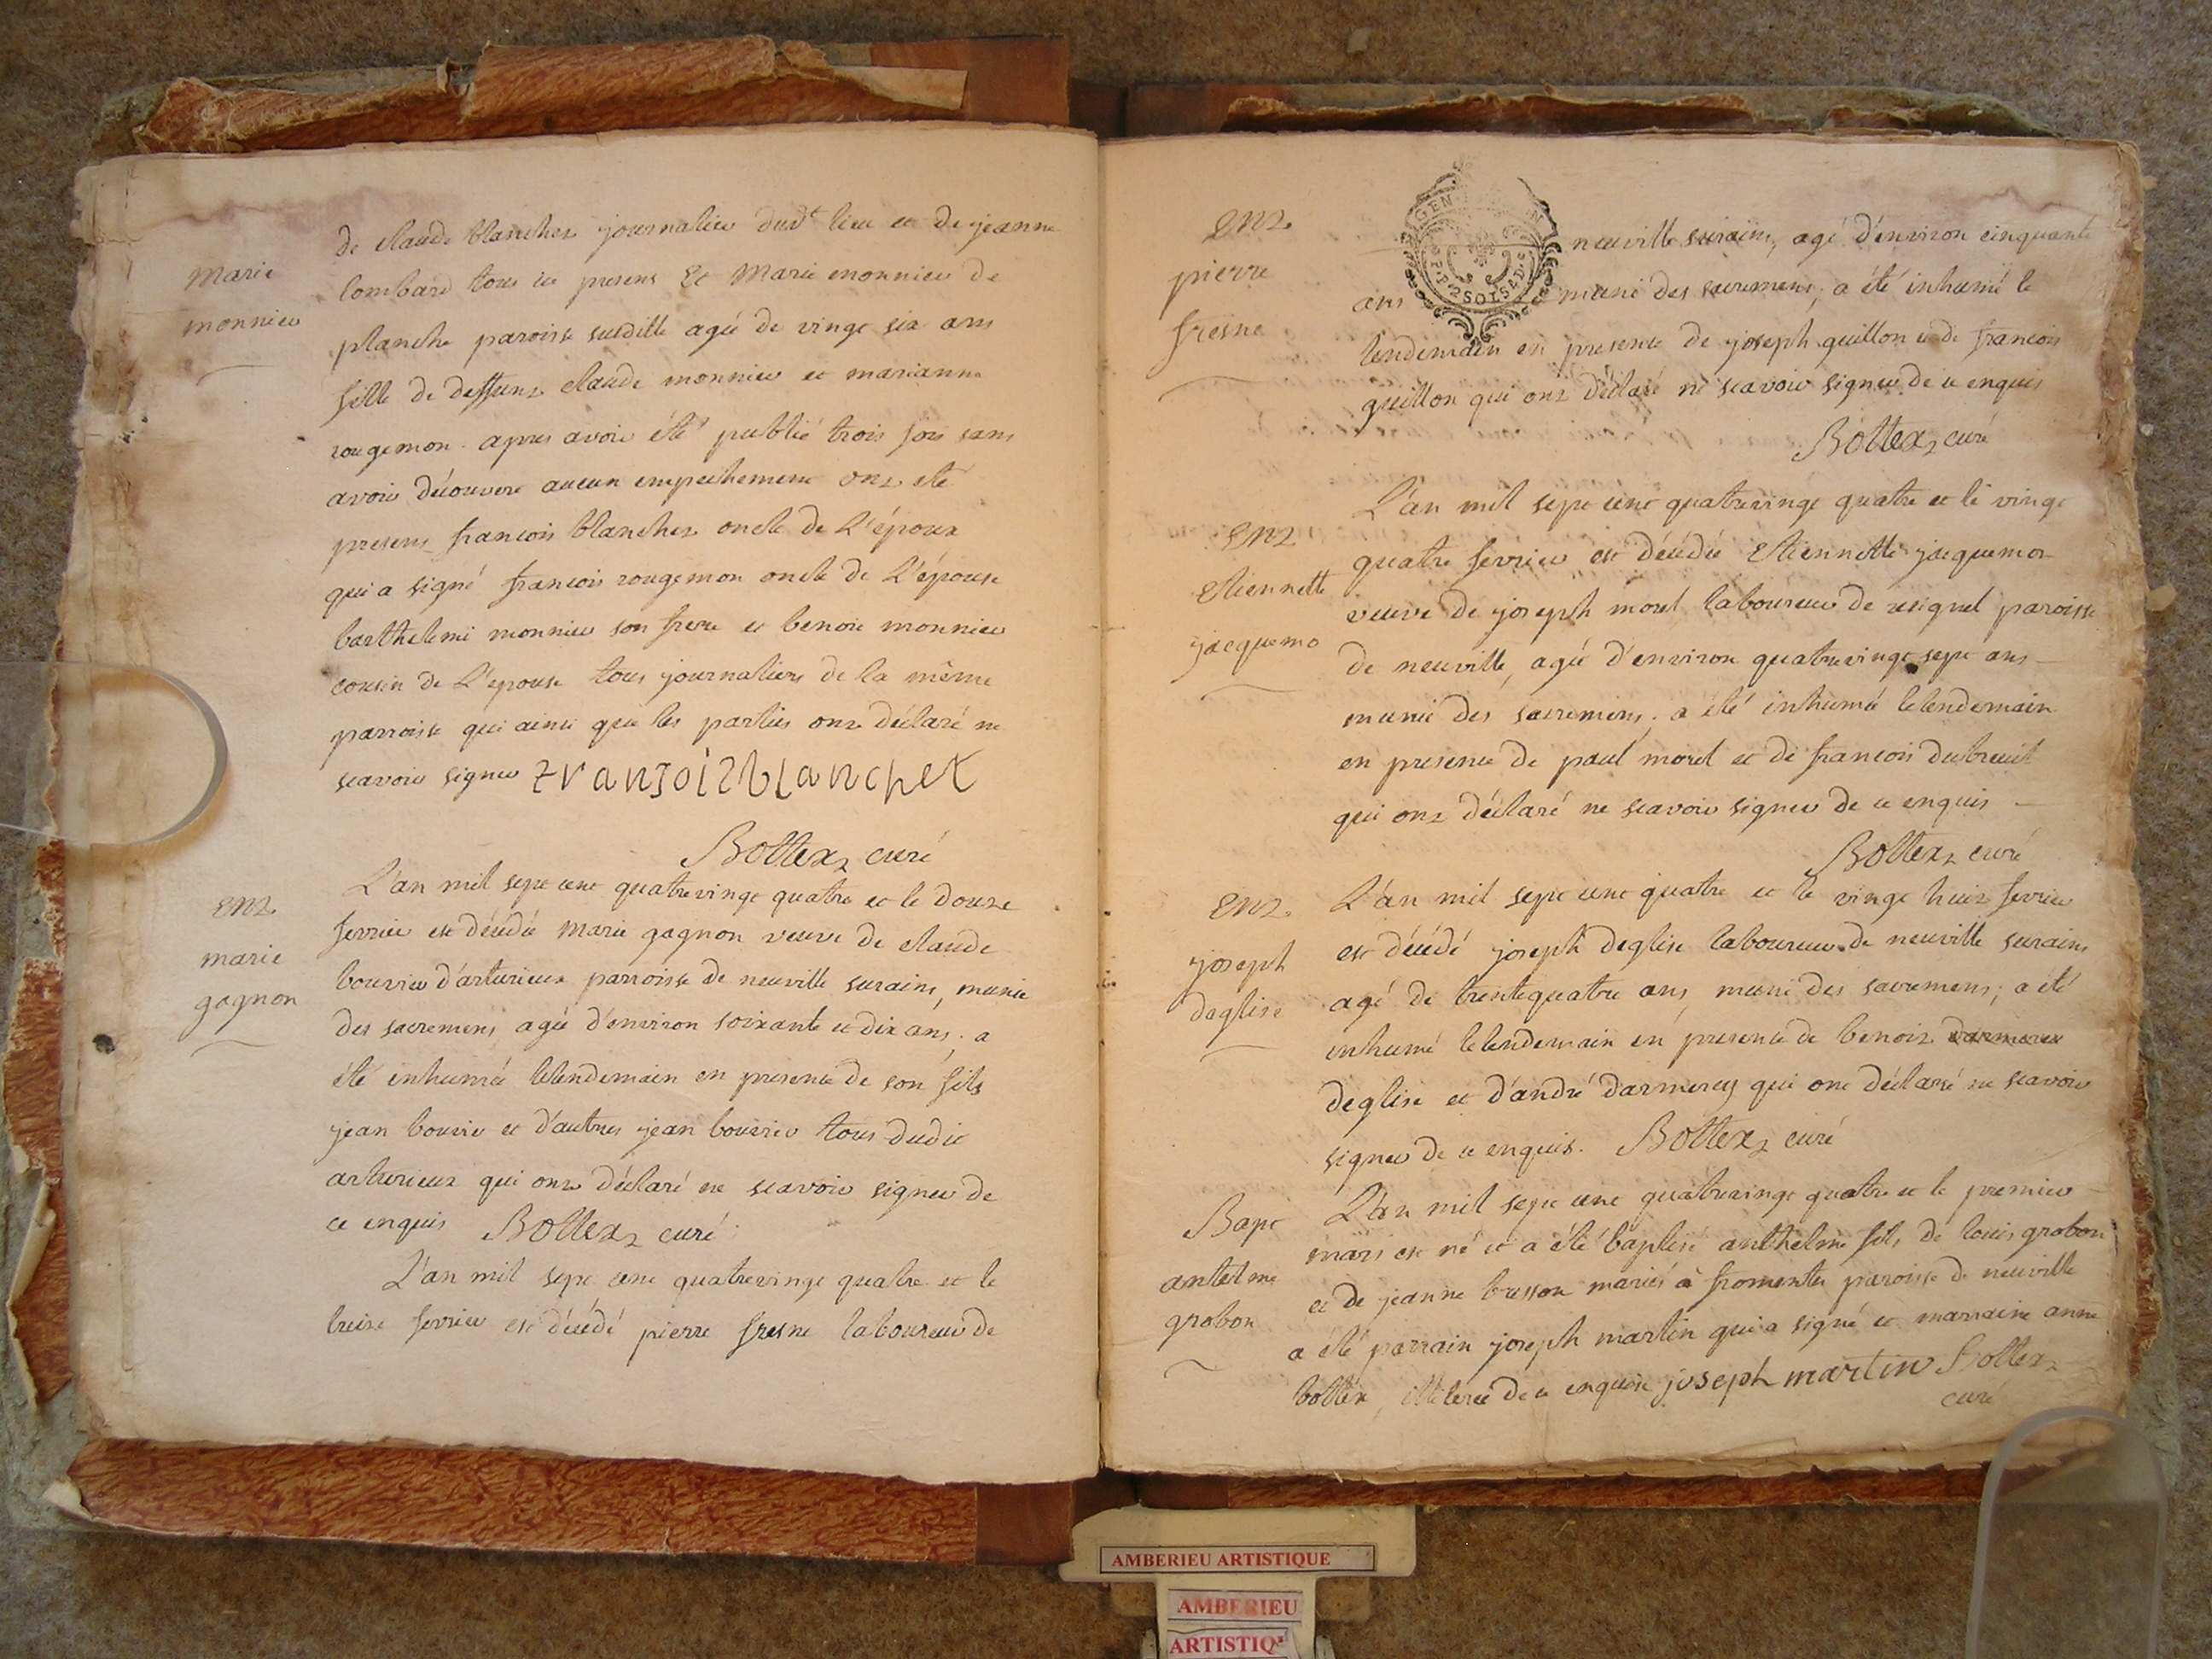 marie
monnier
de claude blanchet journalier dudt lieu et de jeanne
lombard tous ici presens Et Marie monnier de
planche paroisse susditte agée de vingt six ans
fille de deffunt claude monnier et marianne
rougemon. apres avoir été publié trois fois sans
avoir découvert aucun empechement ont eté
presens françois blanchet oncle de L'époux
qui a signé françois rougemon oncle de L'épouse
barthelemi monnier son frere et benoit monnier
cousin de L'epouse tous journaliers de la même
parroisse qui ainsi que les parties ont déclaré ne
scavoir signer franjoisblanchet
Bottex, curé
ent.
marie
gagnon
L'an mil sept cent quatrevingt quatre et le douze
fevrier est décédée Marie gagnon veuve de claude
bouvier d'arturieux parroisse de neuville surains, munie
des sacremens, agée d'environ soixante et dix ans, a
été inhumée lelendemain en presence de son fils
jean bouvier et d'autres jean bouvier tous dudit
arturieux qui ont déclaré ne scavoir signer de
ce enquis Bottex, curé
L'an mil sept cent quatrevingt quatre et le
treize fevrier est décédé pierre fresne laboureur de
ent.
pierre
fresne
GEN
2 SOLS 4 D.
neuville surains, agé d'environ cinquante
ans muni des sacremens, a été inhumé le
lendemain en presence de joseph guillon et de françois
guillon qui ont déclaré ne scavoir signer de ce enquis
Bottex, curé
Ent
Etiennette
jacquemo
L'an mil sept cent quatrevingt quatre et le vingt
quatre fevrier est décédée Etiennette jacquemot
veuve de joseph morel laboureur de resignel paroisse
de neuville, agée d'environ quatrevingt sept ans
munie des sacremens, a été inhumée lelendemain
en presence de paul morel et de françois dubreuil
qui ont déclaré ne scavoir signer de ce enquis
Bottex, curé
Ent.
joseph
deglise
L'an mil sept cent quatre et le vingt huit fevrier
est décédé joseph deglise laboureur de neuville surains
agé de trentequatre ans, muni des sacremens, a été
inhumé lelendemain en presence de benoit
deglise et d'andré darmerey qui ont déclaré ne scavoir
signer de ce enquis. Bottex, curé
Bapt
antelme
grobon
L'an mil sept cent quatrevingt quatre et le premier
mars est né et a été baptisé anthelme fils de louis grobon
et de jeanne bresson mariés à fromente paroisse de neuville
a été parrain joseph martin qui a signé et marraine anne
bottex, illiterée de ce enquise joseph martin Bottex,
curé
AMBERIEU ARTISTIQUE
AMBERIEU
ARTISTIQ